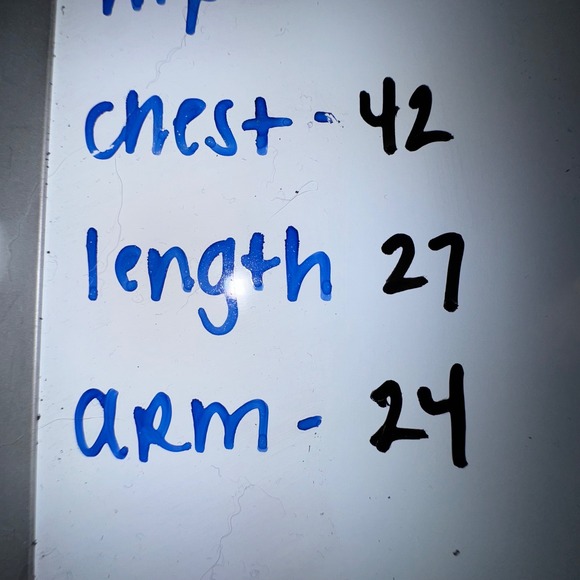 chest - 42
length 27
arm - 24